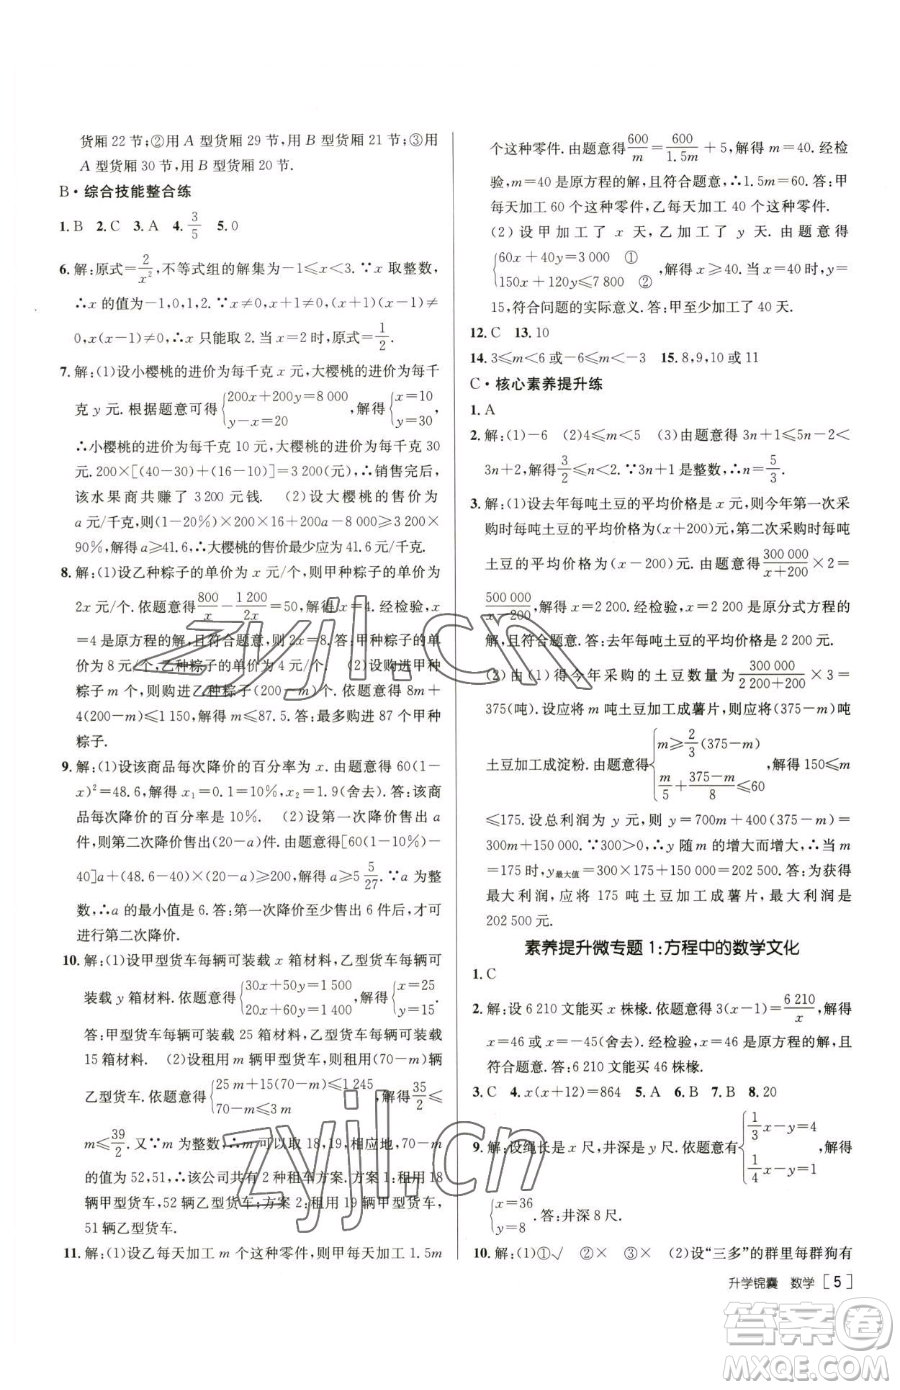 货厢 22 节;②用 A 型货厢 29 节,用 B 型货厢 21 节;③用
A 型货厢 30 节,用 B 型货厢 20 节.
B·综合技能整合练
1. B 2. C 3. A 4. 3/5 5. 0
6. 解:原式=2/x²,不等式组的解集为-1≤x<3.∵x 取整数,
∴x 的值为-1,0,1,2.∵x≠0,x+1≠0,(x+1)(x-1)≠
0,x(x-1)≠0,∴x 只能取 2.当 x=2 时,原式=1/2.
7. 解:(1)设小樱桃的进价为每千克 x 元,大樱桃的进价为每
千克 y 元.根据题意可得{200x+200y=8 000 y-x=20,解得{x=10 y=30.
∴小樱桃的进价为每千克 10 元,大樱桃的进价为每千克 30
元.200×[(40-30)+(16-10)]=3 200(元),∴销售完后,
该水果商共赚了 3 200 元钱. (2)设大樱桃的售价为
a 元/千克,则(1-20%)×200×16+200a-8 000≥3 200×
90%,解得 a≥41.6,∴大樱桃的售价最少应为 41.6 元/千克.
8. 解:(1)设乙种粽子的单价为 x 元/个,则甲种粽子的单价为
2x 元/个.依题意得800/x-1 200/2x=50,解得 x=4.经检验,x
=4 是原方程的解,且符合题意,则 2x=8.答:甲种粽子的单
价为 8 元/个,乙种粽子的单价为 4 元/个. (2)设购进甲种
粽子 m 个,则购进乙种粽子(200-m)个.依题意得 8m+
4(200-m)≤1 150,解得 m≤87.5.答:最多购进 87 个甲种
粽子.
9. 解:(1)设该商品每次降价的百分率为 x.依题意得 60(1-
x)²=48.6,解得 x₁=0.1=10%,x₂=1.9(舍去).答:该商品
每次降价的百分率是 10%. (2)设第一次降价售出 a
件,则第二次降价售出(20-a)件.依题意得[60(1-10%)-
40]a+(48.6-40)×(20-a)≥200,解得 a≥5 5/27.∵a 为整
数,∴a 的最小值是 6.答:第一次降价至少售出 6 件后,才可
进行第二次降价.
10. 解:(1)设甲型货车每辆可装载 x 箱材料,乙型货车每辆可
装载 y 箱材料.依题意得{30x+50y=1 500 20x+60y=1 400,解得{x=25 y=15.
答:甲型货车每辆可装载 25 箱材料,乙型货车每辆可装载
15 箱材料. (2)设租用 m 辆甲型货车,则租用(70-m)辆
乙型货车.依题意得{25m+15(70-m)≤1 245 70-m≤3m,解得35/2≤
m≤39/2.又∵m 为整数,∴m 可以取 18,19,相应地,(70-m)
的值为 52,51,∴该公司共有 2 种租车方案.方案 1:租用 18
辆甲型货车,52 辆乙型货车;方案 2:租用 19 辆甲型货车,
51 辆乙型货车.
11. 解:(1)设乙每天加工 m 个这种零件,则甲每天加工 1.5m
个这种零件.由题意得600/m=600/1.5m+5,解得 m=40.经检
验,m=40 是原方程的解,且符合题意,∴1.5m=60.答:甲
每天加工 60 个这种零件,乙每天加工 40 个这种零件.
(2)设甲加工了 x 天,乙加工了 y 天.由题意得
{60x+40y=3 000 ① 150x+120y≤7 800 ②,解得 x≥40.当 x=40 时,y=
15,符合问题的实际意义.答:甲至少加工了 40 天.
12. C 13. 10
14. 3≤m<6 或-6≤m<-3 15. 8,9,10 或 11
C·核心素养提升练
1. A
2. 解:(1)-6 (2)4≤m<5 (3)由题意得 3n+1≤5n-2<
3n+2,解得3/2≤n<2.∵3n+1 为整数,∴n=5/3.
3. 解:(1)设去年每吨土豆的平均价格是 x 元,则今年第一次采
购时每吨土豆的平均价格为(x+200)元,第二次采购时每吨
土豆的平均价格为(x-200)元.由题意得300 000/x+200×2=
500 000/x-200,解得 x=2 200.经检验,x=2 200 是原分式方程的
解,且符合题意.答:去年每吨土豆的平均价格是 2 200 元.
(2)由(1)得今年采购的土豆数量为300 000/2 200+200×3=
375(吨).设应将 m 吨土豆加工成薯片,则应将(375-m)吨
土豆加工成淀粉.由题意得{m≥2/3(375-m) m/5+375-m/8≤60,解得 150≤m
≤175.设总利润为 y 元,则 y=700m+400(375-m)=
300m+150 000.∵300>0,∴y 随 m 的增大而增大,当 m=
175 时,y最大值=300×175+150 000=202 500.答:为获得
最大利润,应将 175 吨土豆加工成薯片,最大利润是
202 500 元.
素养提升微专题 1:方程中的数学文化
1. C
2. 解:设 6 210 文能买 x 株椽.依题意得 3(x-1)=6 210/x,解得
x=46 或 x=-45(舍去).经检验,x=46 是原方程的解,且
符合题意.答:6 210 文能买 46 株椽.
3. C 4. x(x+12)=864 5. A 6. B 7. B 8. 20
9. 解:设绳长是 x 尺,井深是 y 尺.依题意有{1/3x-y=4 1/4x-y=1,解得
{x=36 y=8.答:井深 8 尺.
10. 解:(1)①√ ②× ③× (2)设“三多”的群里每群狗有
升学锦囊 数学 [ 5 ]
zyjl.cn
zyjl.cn
答案圈
MXQE.COM